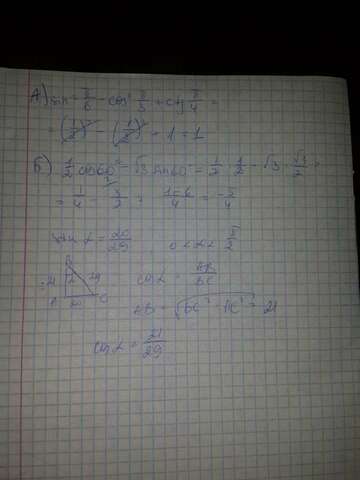 А) sin² π/6 - cos² π/3 + ctg π/4 =
= (1/2)² - (1/2)² + 1 = 1
Б) 1/2 cos60° - √3 sin60° = 1/2 · 1/2 - √3 · √3/2 =
= 1/4 - 3/2 = 1-6/4 = -5/4
sin α = 20/29 0 < α < π/2
B
21 29
A 20 C
cos α = AB/BC
AB = √BC² - AC² = 21
cos α = 21/29